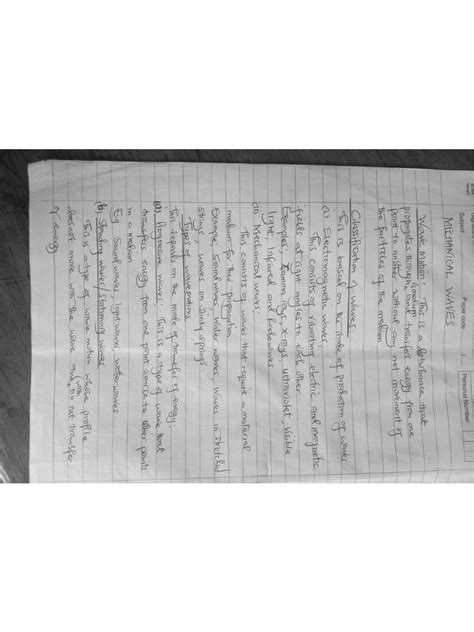 Paper code
Personal Number
MECHANICAL WAVES
Wave Motion: This is a disturbance that
propagates through a medium and transfers energy from one
point to another without any net movement of
the particles of the medium
Classification of Waves:
This is based on the mode of production of waves
(i) Electromagnetic waves:
This consists of vibrating electric and magnetic
fields at right angles to each other.
Examples; Gamma rays, x-rays, ultraviolet, visible
light, Infrared and Radiowaves
(ii) Mechanical waves:
This consists of waves that require a material
medium for their propagation
Example, Sound waves, Water waves, Waves in stretched
strings, waves on slinky springs.
Types of wave motion;
This depends on the mode of transfer of energy;
(a) Progressive waves: This is a type of wave that
transfers energy from one point source to other points
in a medium
Eg Sound waves, light waves, water waves
(b) Standing waves/stationary waves
This is a type of wave motion whose profile
does not move with the wave with no net transfer
of energy